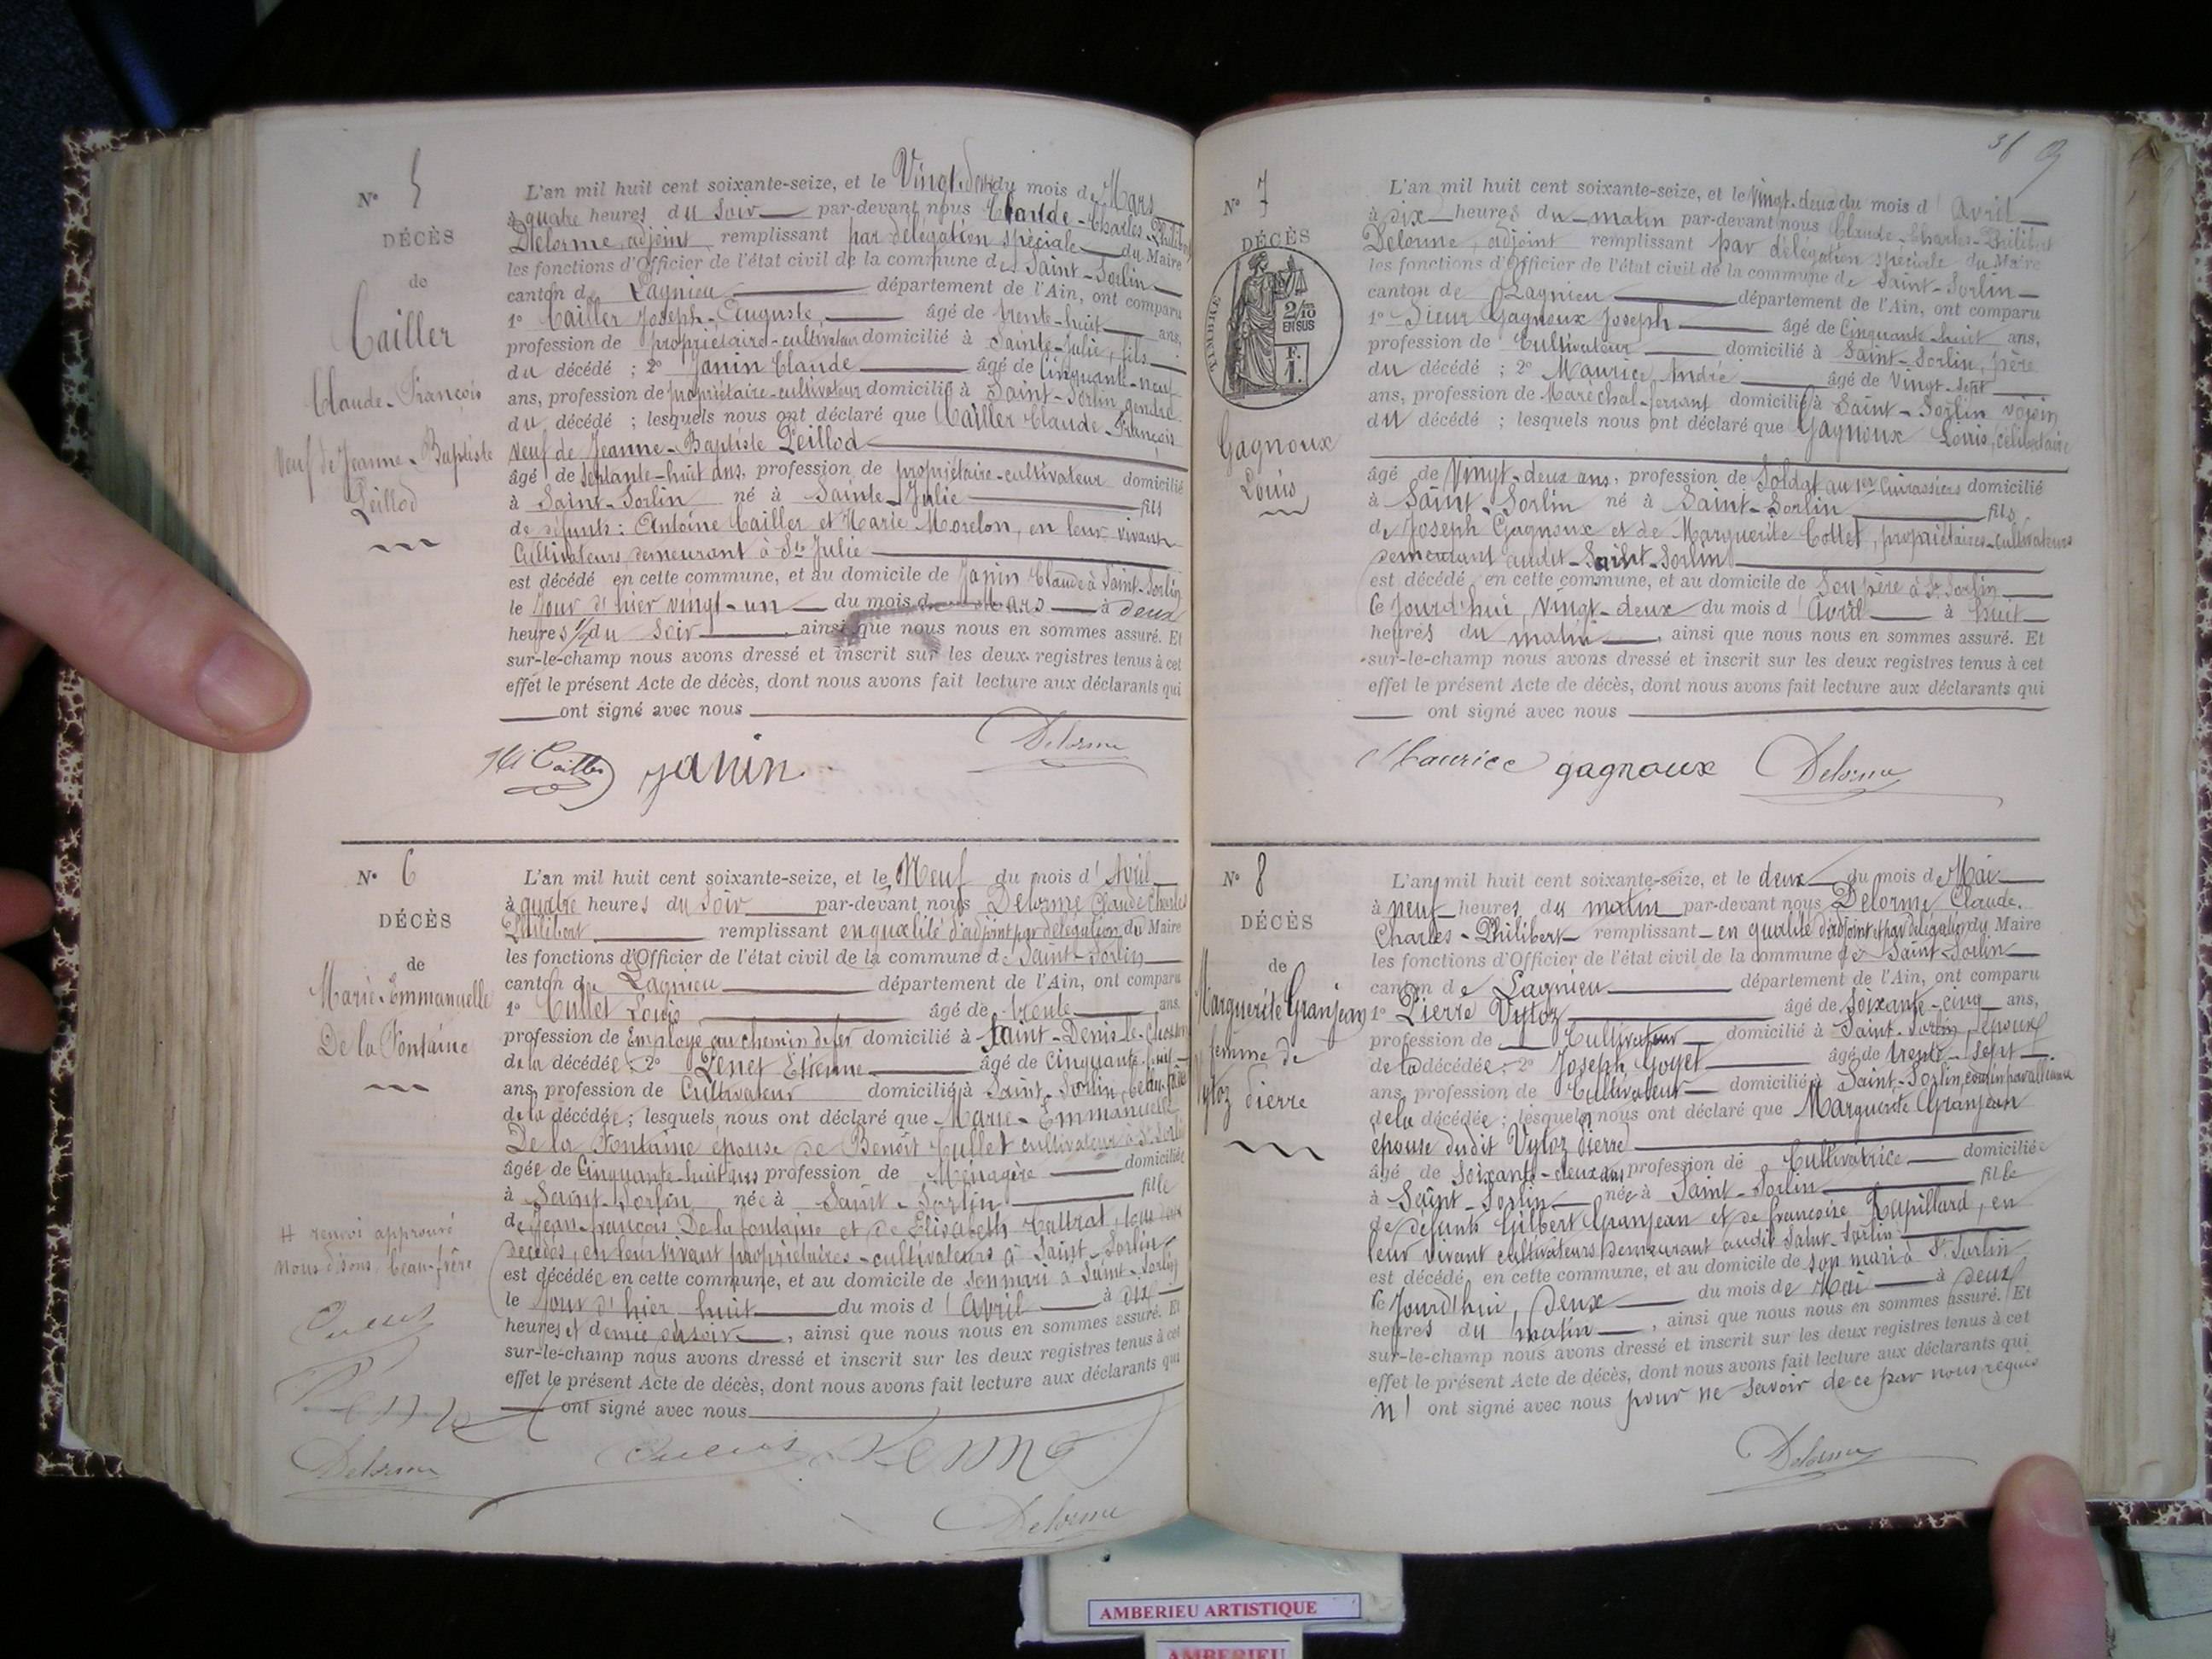 N° 5
DÉCÈS
de
Cailler
Claude-François
Veuf de Jeanne-Baptiste
Peillod
L'an mil huit cent soixante-seize, et le Vingt-deux du mois de Mars
à quatre heures du Soir par-devant nous Claude-Charles-Philibert
Delorme, adjoint remplissant par délégation spéciale du Maire
les fonctions d'Officier de l'état civil de la commune de Saint-Sorlin
canton de Lagnieu département de l'Ain, ont comparu
1° Cailler Joseph-Auguste, âgé de trente-huit ans,
profession de propriétaire-cultivateur domicilié à Sainte-Julie, fils
du décédé ; 2° Janin Claude âgé de Cinquante-neuf
ans, profession de propriétaire-cultivateur domicilié à Saint-Sorlin, gendre
du décédé ; lesquels nous ont déclaré que Cailler Claude-François
Veuf de Jeanne-Baptiste Peillod
âgé de Septante-huit ans, profession de propriétaire-cultivateur domicilié
à Saint-Sorlin né à Sainte-Julie fils
de défunts : Antoine Cailler et Marie Morelon, en leur vivant
Cultivateurs demeurant à Ste Julie
est décédé en cette commune, et au domicile de Janin Claude à Saint-Sorlin
le Jour d'hier vingt-un du mois de Mars à deux
heures 1/2 du Soir, ainsi que nous nous en sommes assuré. Et
sur-le-champ nous avons dressé et inscrit sur les deux registres tenus à cet
effet le présent Acte de décès, dont nous avons fait lecture aux déclarants qui
ont signé avec nous
Cailler janin Delorme
N° 6
DÉCÈS
de
Marie-Emmanuelle
De la Fontaine
# renvoi approuvé
nous disons, beau-frère
Delorme
L'an mil huit cent soixante-seize, et le Neuf du mois d'Avril
à quatre heures du Soir par-devant nous Delorme Claude Charles
Philibert remplissant en qualité d'adjoint par délégation du Maire
les fonctions d'Officier de l'état civil de la commune de Saint-Sorlin
canton de Lagnieu département de l'Ain, ont comparu
1° Cullet Louis âgé de trente ans,
profession de Employé au chemin de fer domicilié à Saint-Denis-le-Chosson
de la décédée ; 2° Penet Etienne âgé de Cinquante-neuf
ans, profession de Cultivateur domicilié à Saint-Sorlin, beau-père
de la décédée ; lesquels nous ont déclaré que Marie-Emmanuelle
De la Fontaine épouse de Benoît Cullet cultivateur à St Sorlin
âgée de Cinquante-huit ans profession de Ménagère domiciliée
à Saint-Sorlin née à Saint-Sorlin fille
de Jean-françois De la fontaine et de Elisabeth tous deux
décédés, en leur vivant propriétaires-cultivateurs à Saint-Sorlin
est décédée en cette commune, et au domicile de Son mari à Saint-Sorlin
le Jour d'hier huit du mois d'Avril à dix
heures et demie du soir, ainsi que nous nous en sommes assuré. Et
sur-le-champ nous avons dressé et inscrit sur les deux registres tenus à cet
effet le présent Acte de décès, dont nous avons fait lecture aux déclarants qui
ont signé avec nous
Delorme
36 9
N° 7
DÉCÈS
TIMBRE
2/10
EN SUS
F.
1.
Gagnoux
Louis
L'an mil huit cent soixante-seize, et le Vingt-deux du mois d'Avril
à dix heures du matin par-devant nous Claude-Charles-Philibert
Delorme, adjoint remplissant par délégation spéciale du Maire
les fonctions d'Officier de l'état civil de la commune de Saint-Sorlin
canton de Lagnieu département de l'Ain, ont comparu
1° Sieur Gagnoux Joseph âgé de Cinquante-huit ans,
profession de Cultivateur domicilié à Saint-Sorlin, père
du décédé ; 2° Maurice André âgé de Vingt-sept
ans, profession de Maréchal-ferrant domicilié à Saint-Sorlin voisin
du décédé ; lesquels nous ont déclaré que Gagnoux Louis, célibataire
âgé de Vingt-deux ans, profession de Soldat au 1er Cuirassiers domicilié
à Saint-Sorlin né à Saint-Sorlin fils
de Joseph Gagnoux et de Marguerite Cottet, propriétaires-cultivateurs
demeurant audit Saint-Sorlin
est décédé en cette commune, et au domicile de Son père à St Sorlin
le Jourd'hui, Vingt-deux du mois d'Avril à huit
heures du matin, ainsi que nous nous en sommes assuré. Et
sur-le-champ nous avons dressé et inscrit sur les deux registres tenus à cet
effet le présent Acte de décès, dont nous avons fait lecture aux déclarants qui
ont signé avec nous
Maurice gagnoux Delorme
N° 8
DÉCÈS
de
Marguerite Granjean
femme de
Vytoz Pierre
L'an mil huit cent soixante-seize, et le deux du mois de Mai
à neuf heures du matin par-devant nous Delorme Claude.
Charles-Philibert remplissant en qualité d'adjoint et par délégation du Maire
les fonctions d'Officier de l'état civil de la commune de Saint-Sorlin
canton de Lagnieu département de l'Ain, ont comparu
1° Pierre Vytoz âgé de Soixante-cinq ans,
profession de Cultivateur domicilié à Saint-Sorlin, époux
de la décédée ; 2° Joseph Goyet âgé de trente-sept
ans, profession de Cultivateur domicilié à Saint-Sorlin, cousin par alliance
de la décédée ; lesquels nous ont déclaré que Marguerite Granjean
épouse dudit Vytoz Pierre
âgé de Soixante-deux ans profession de Cultivatrice domiciliée
à Saint-Sorlin née à Saint-Sorlin fille
de défunts Gilbert Granjean et de françoise Rapillard, en
leur vivant cultivateurs demeurant audit Saint-Sorlin
est décédé en cette commune, et au domicile de son mari à St Sorlin
le Jourd'hui, deux du mois de Mai à deux
heures du matin, ainsi que nous nous en sommes assuré. Et
sur-le-champ nous avons dressé et inscrit sur les deux registres tenus à cet
effet le présent Acte de décès, dont nous avons fait lecture aux déclarants qui
n' ont signé avec nous pour ne savoir de ce par nous requis
Delorme
AMBERIEU ARTISTIQUE
AMBERIEU